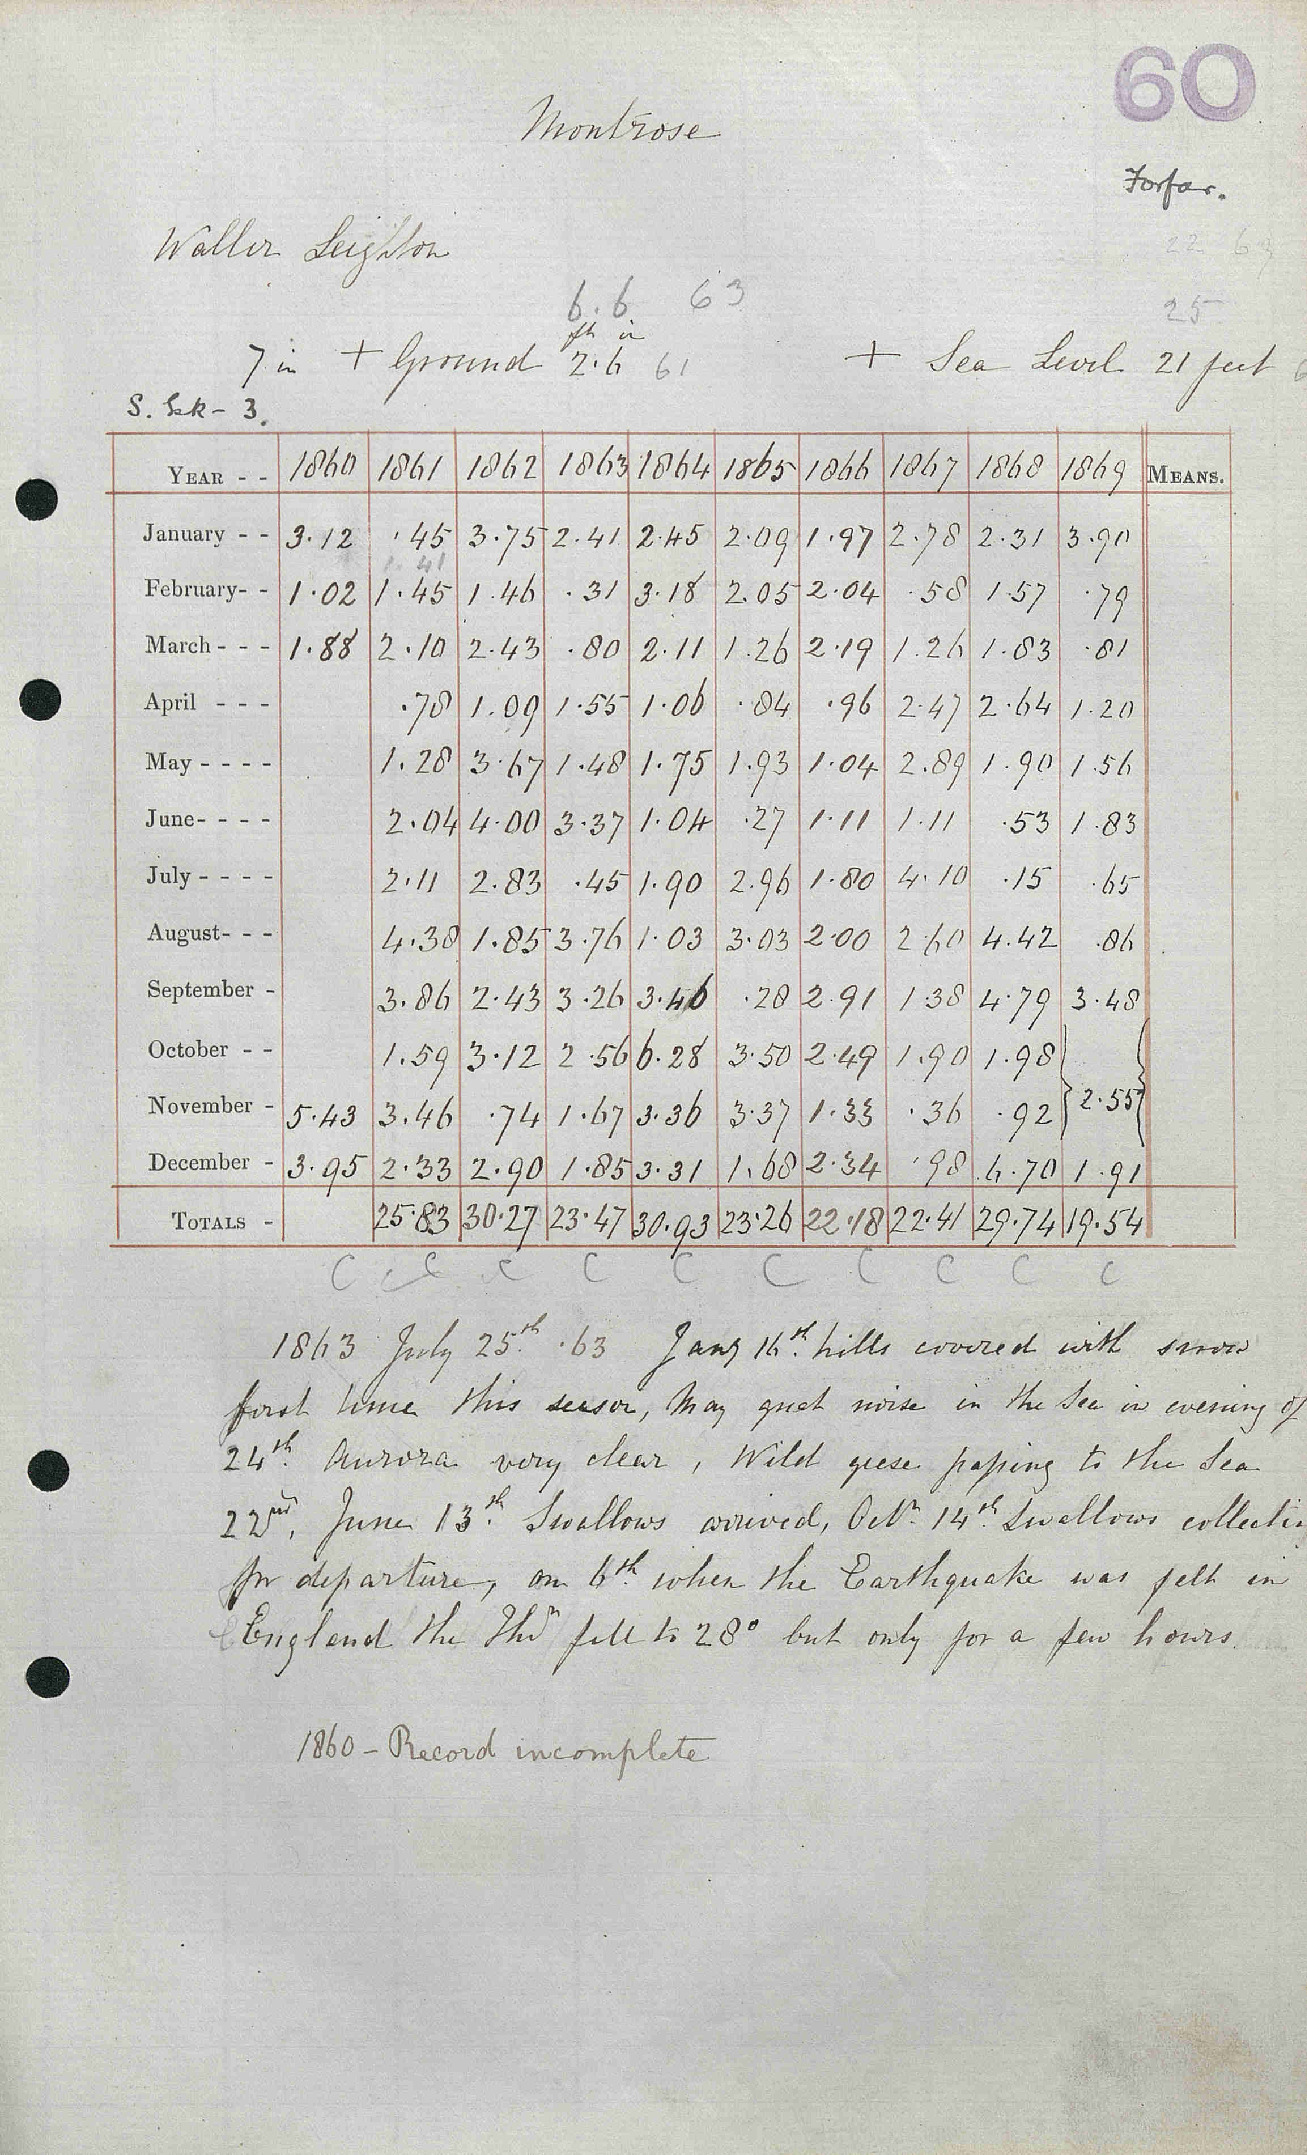 60
Montrose
Forfar.
Walter Leighton
22 69
6.6 63
25
ft in
7 in + Ground 2.6 61 + Sea Level 21 feet
S. 3.
YEAR - - 1860 1861 1862 1863 1864 1865 1866 1867 1868 1869 MEANS.
January - - 3.12 .45 3.75 2.41 2.45 2.09 1.97 2.78 2.31 3.90
1.41
February- - 1.02 1.45 1.46 .31 3.18 2.05 2.04 .58 1.57 .79
March - - - 1.88 2.10 2.43 .80 2.11 1.26 2.19 1.26 1.83 .81
April - - - .78 1.09 1.55 1.06 .84 .96 2.47 2.64 1.20
May - - - - 1.28 3.67 1.48 1.75 1.93 1.04 2.89 1.90 1.56
June- - - - 2.04 4.00 3.37 1.04 .27 1.11 1.11 .53 1.83
July - - - - 2.11 2.83 .45 1.90 2.96 1.80 4.10 .15 .65
August- - - 4.38 1.85 3.76 1.03 3.03 2.00 2.60 4.42 .86
September - 3.86 2.43 3.26 3.46 .28 2.91 1.38 4.79 3.48
October - - 1.59 3.12 2.56 6.28 3.50 2.49 1.90 1.98
November - 5.43 3.46 .74 1.67 3.36 3.37 1.33 .36 .92 2.55
December - 3.95 2.33 2.90 1.85 3.31 1.68 2.34 .98 6.70 1.91
TOTALS - 25.83 30.27 23.47 30.93 23.26 22.18 22.41 29.74 19.54
C C C C C C C C C C C
1863 July 25th .63 Jany 16th hills covered with snow
first time this season, May great noise in the Sea in evening of
24th Aurora very clear, Wild geese passing to the Sea
22nd, June 13th Swallows arrived, Octr 14th Swallows collectin
for departure, on 6th when the Earthquake was felt in
England the Thr fell to 28° but only for a few hours
1860 - Record incomplete